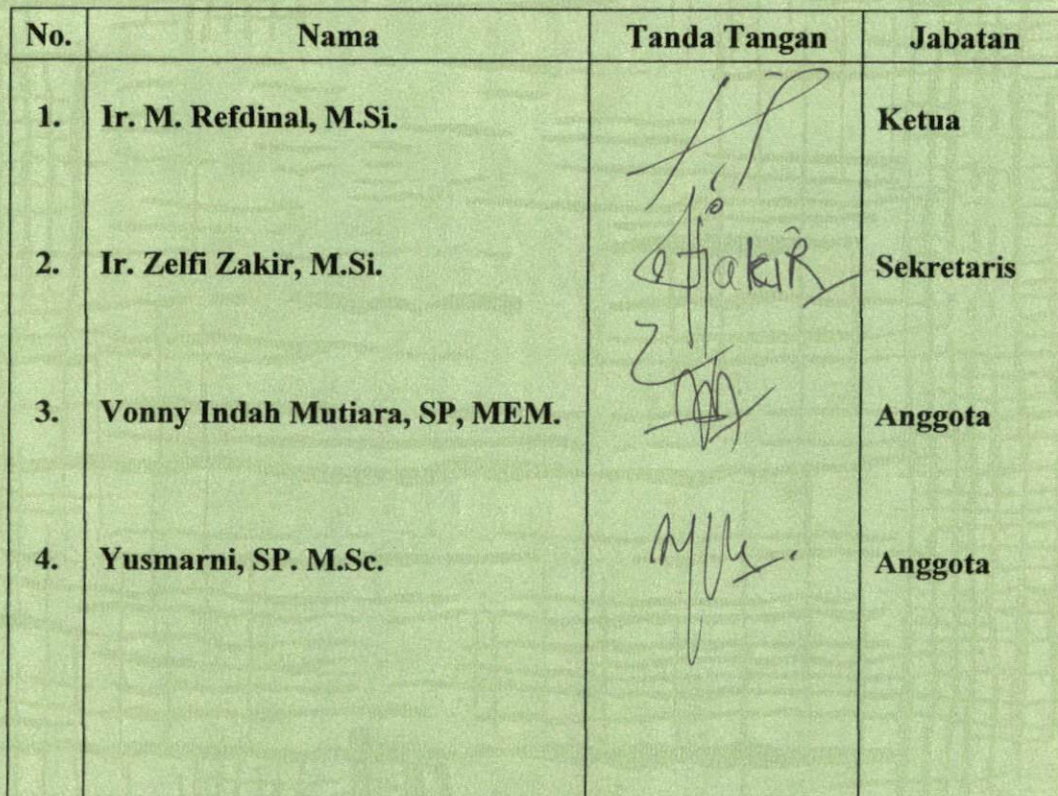 No. Nama Tanda Tangan Jabatan
1. Ir. M. Refdinal, M.Si. Ketua
2. Ir. Zelfi Zakir, M.Si. Sekretaris
3. Vonny Indah Mutiara, SP, MEM. Anggota
4. Yusmarni, SP. M.Sc. Anggota